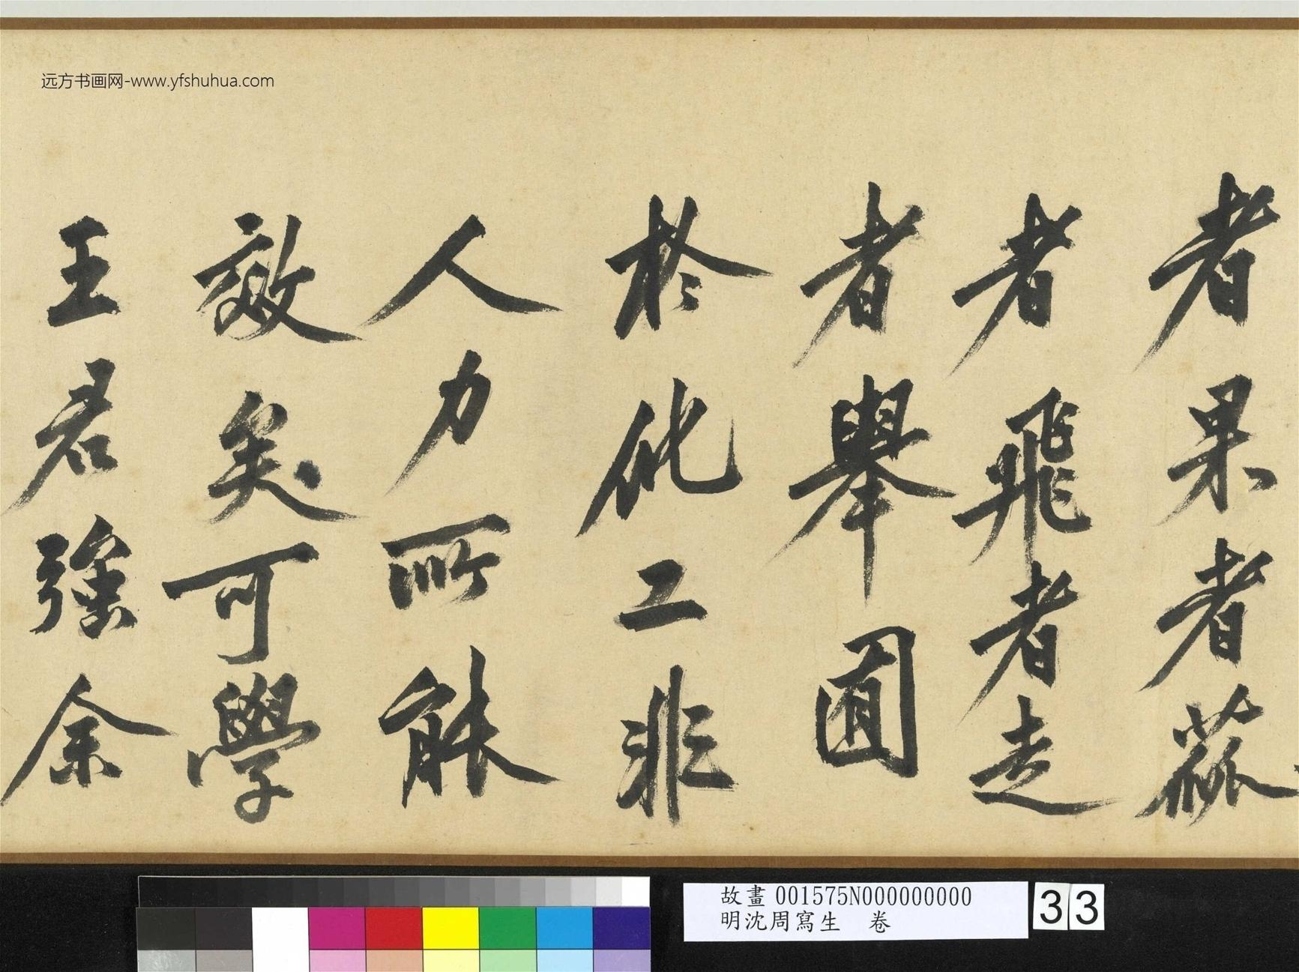 远方书画网-www.yfshuhua.com
者果者蓏
者飛者走
者舉囿
於化工非
人力所能
效矣可學
王君強余
故畫 001575N000000000
明沈周寫生 卷
33